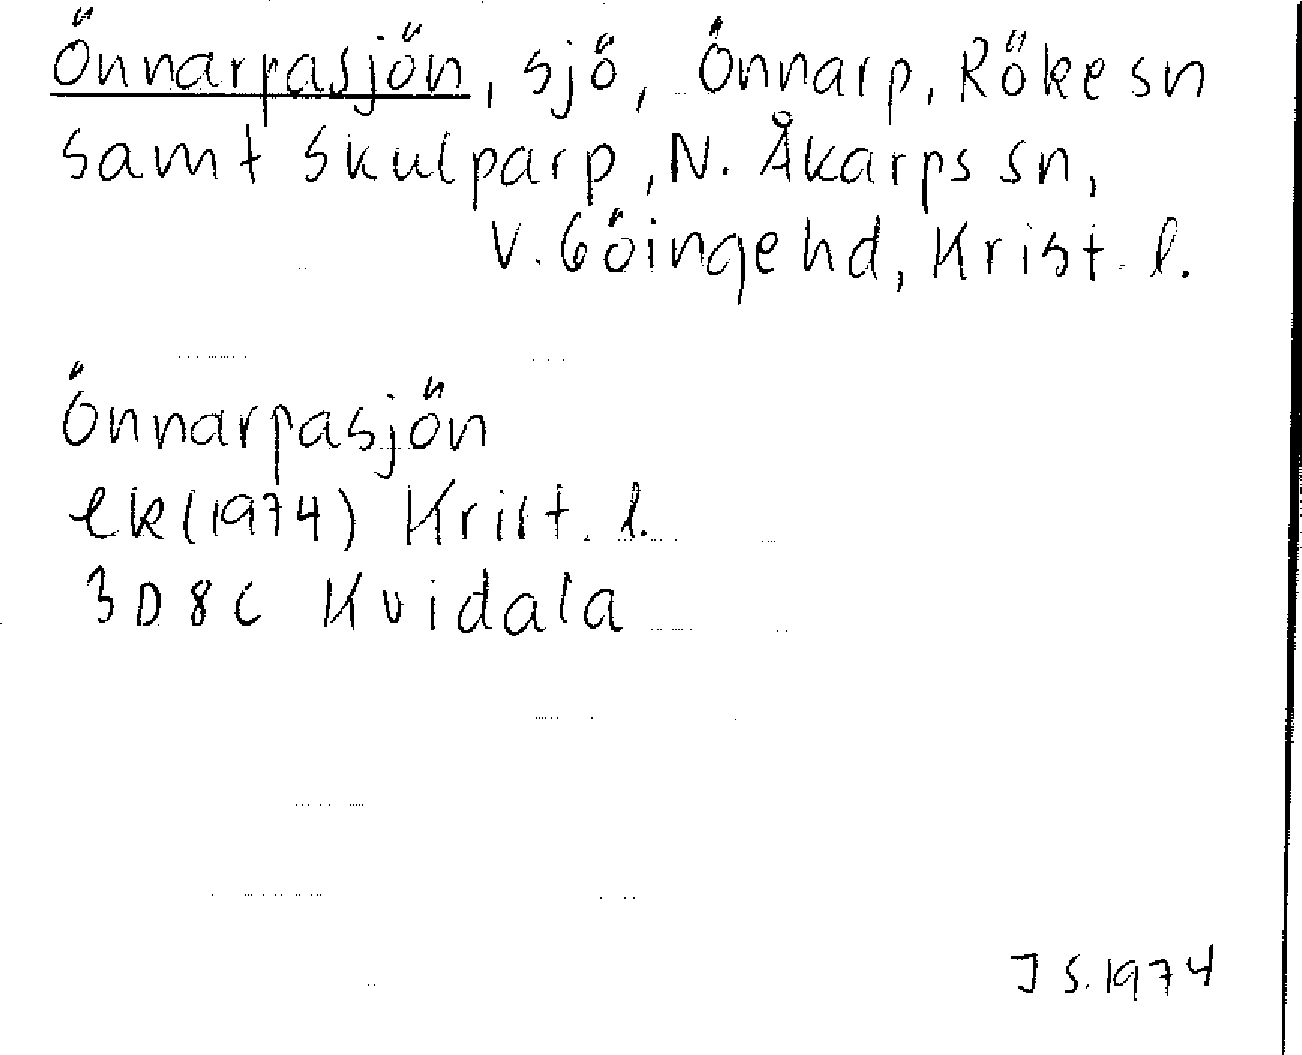 Önnarpasjön, sjö, Önnarp, Röke sn
samt Skulparp, N. Åkarps sn,
V. Göinge hd, Krist. l.
Önnarpasjön
ek (1974) Krist. l.
3D8C Kvidala
JS. 1974